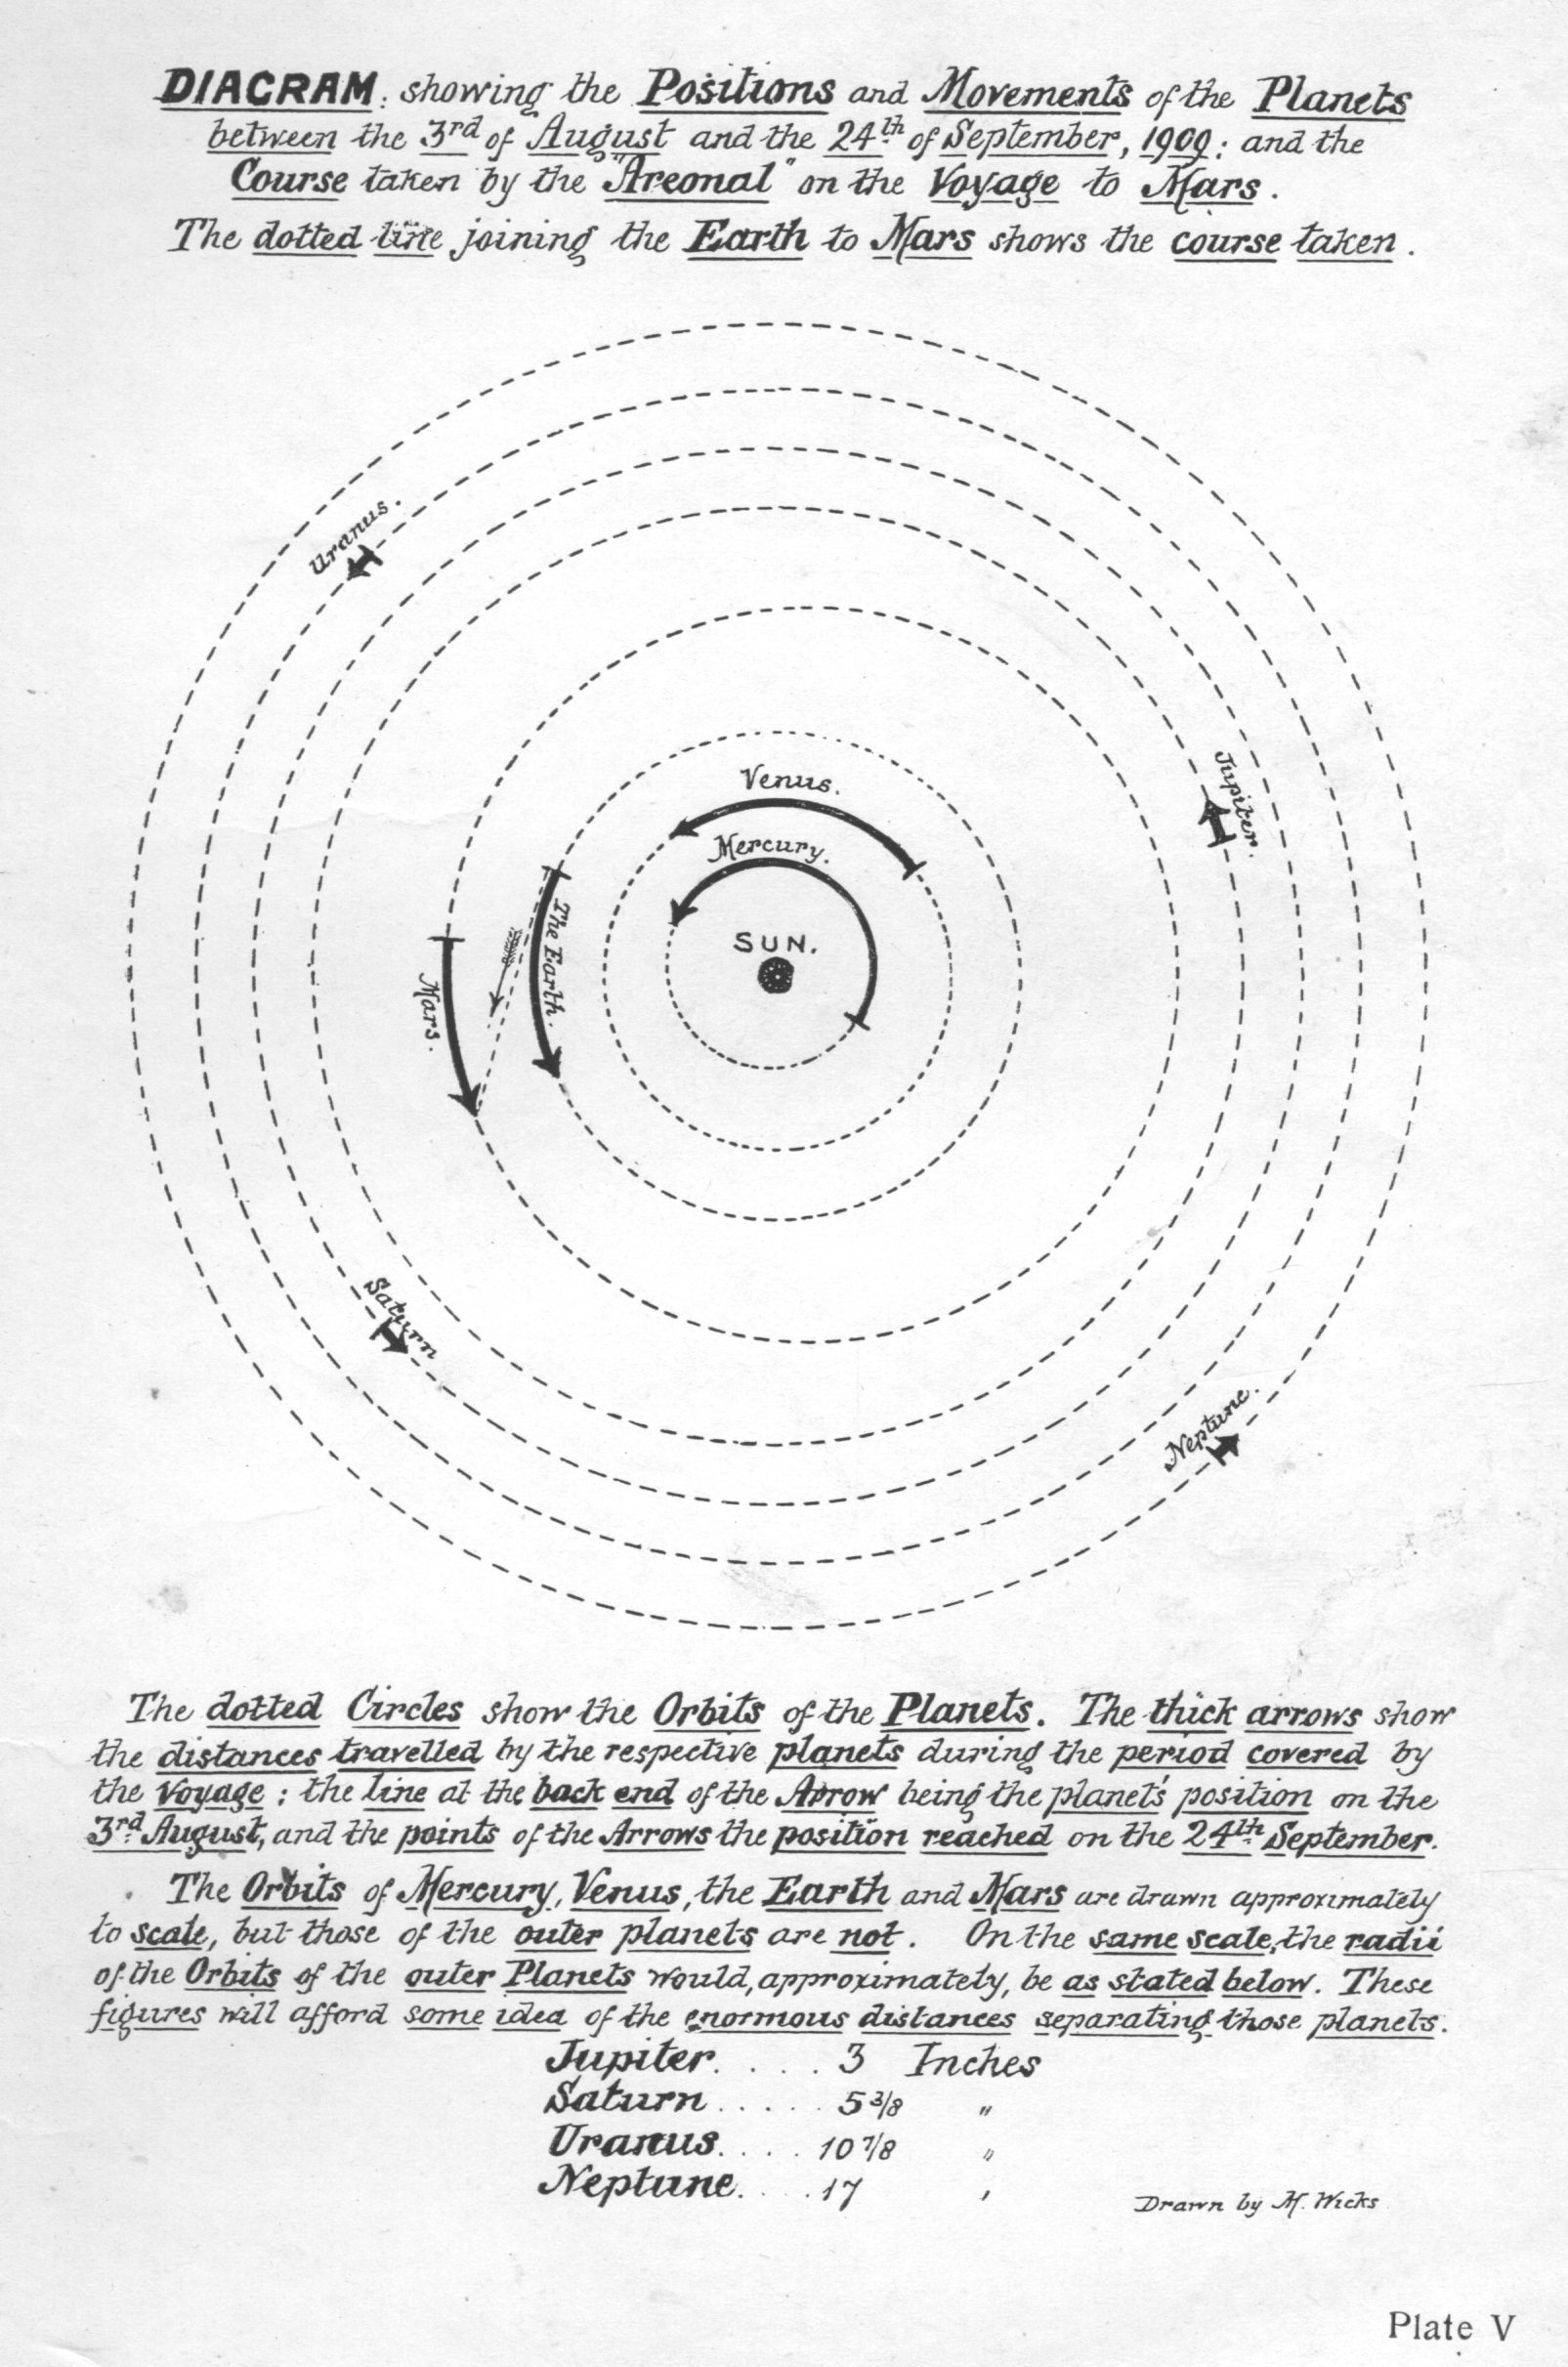 DIAGRAM: showing the Positions and Movements of the Planets
between the 3rd of August and the 24th of September, 1909; and the
Course taken by the "Areonal" on the Voyage to Mars.
The dotted line joining the Earth to Mars shows the course taken.
Uranus.
Jupiter.
Venus.
Mercury.
SUN.
The Earth.
Mars.
Saturn
Neptune.
The dotted Circles show the Orbits of the Planets. The thick arrows show
the distances travelled by the respective planets during the period covered by
the Voyage; the line at the back end of the Arrow being the planet's position on the
3rd August, and the points of the Arrows the position reached on the 24th September.
The Orbits of Mercury, Venus, the Earth and Mars are drawn approximately
to scale, but those of the outer planets are not. On the same scale, the radii
of the Orbits of the outer Planets would, approximately, be as stated below. These
figures will afford some idea of the enormous distances separating those planets.
Jupiter. . . . . 3 Inches
Saturn . . . . . 5 3/8 "
Uranus. . . . . 10 7/8 "
Neptune. . . . 17 "
Drawn by M. Wicks
Plate V